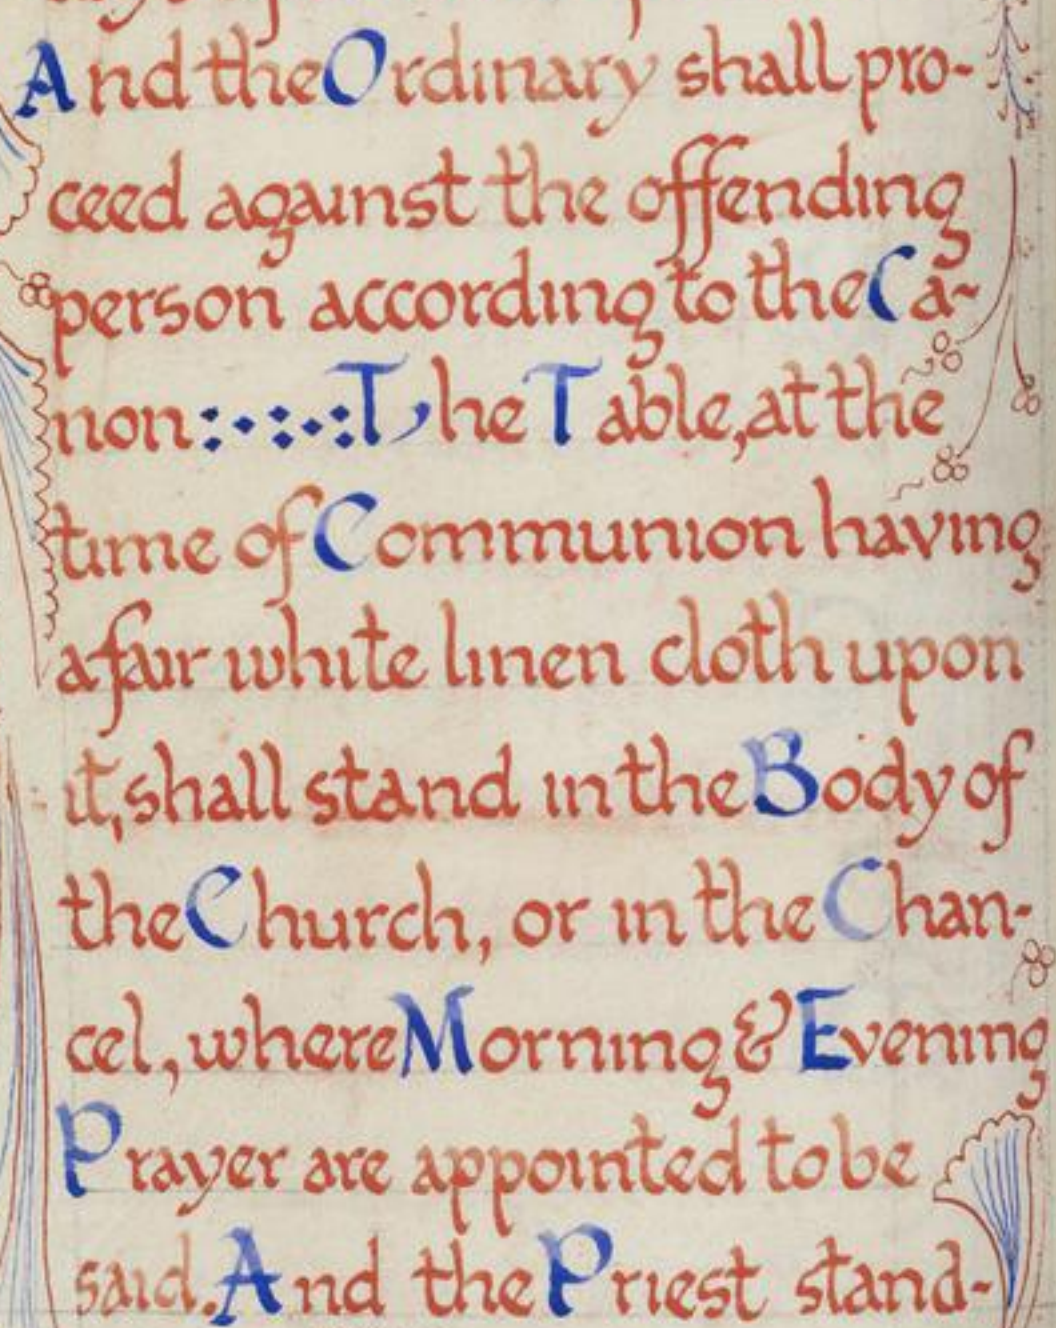 And the Ordinary shall pro-
ceed against the offending
person according to the Ca-
non :·:·: The Table, at the
time of Communion having
a fair white linen cloth upon
it, shall stand in the Body of
the Church, or in the Chan-
cel, where Morning & Evening
Prayer are appointed to be
said. And the Priest stand-